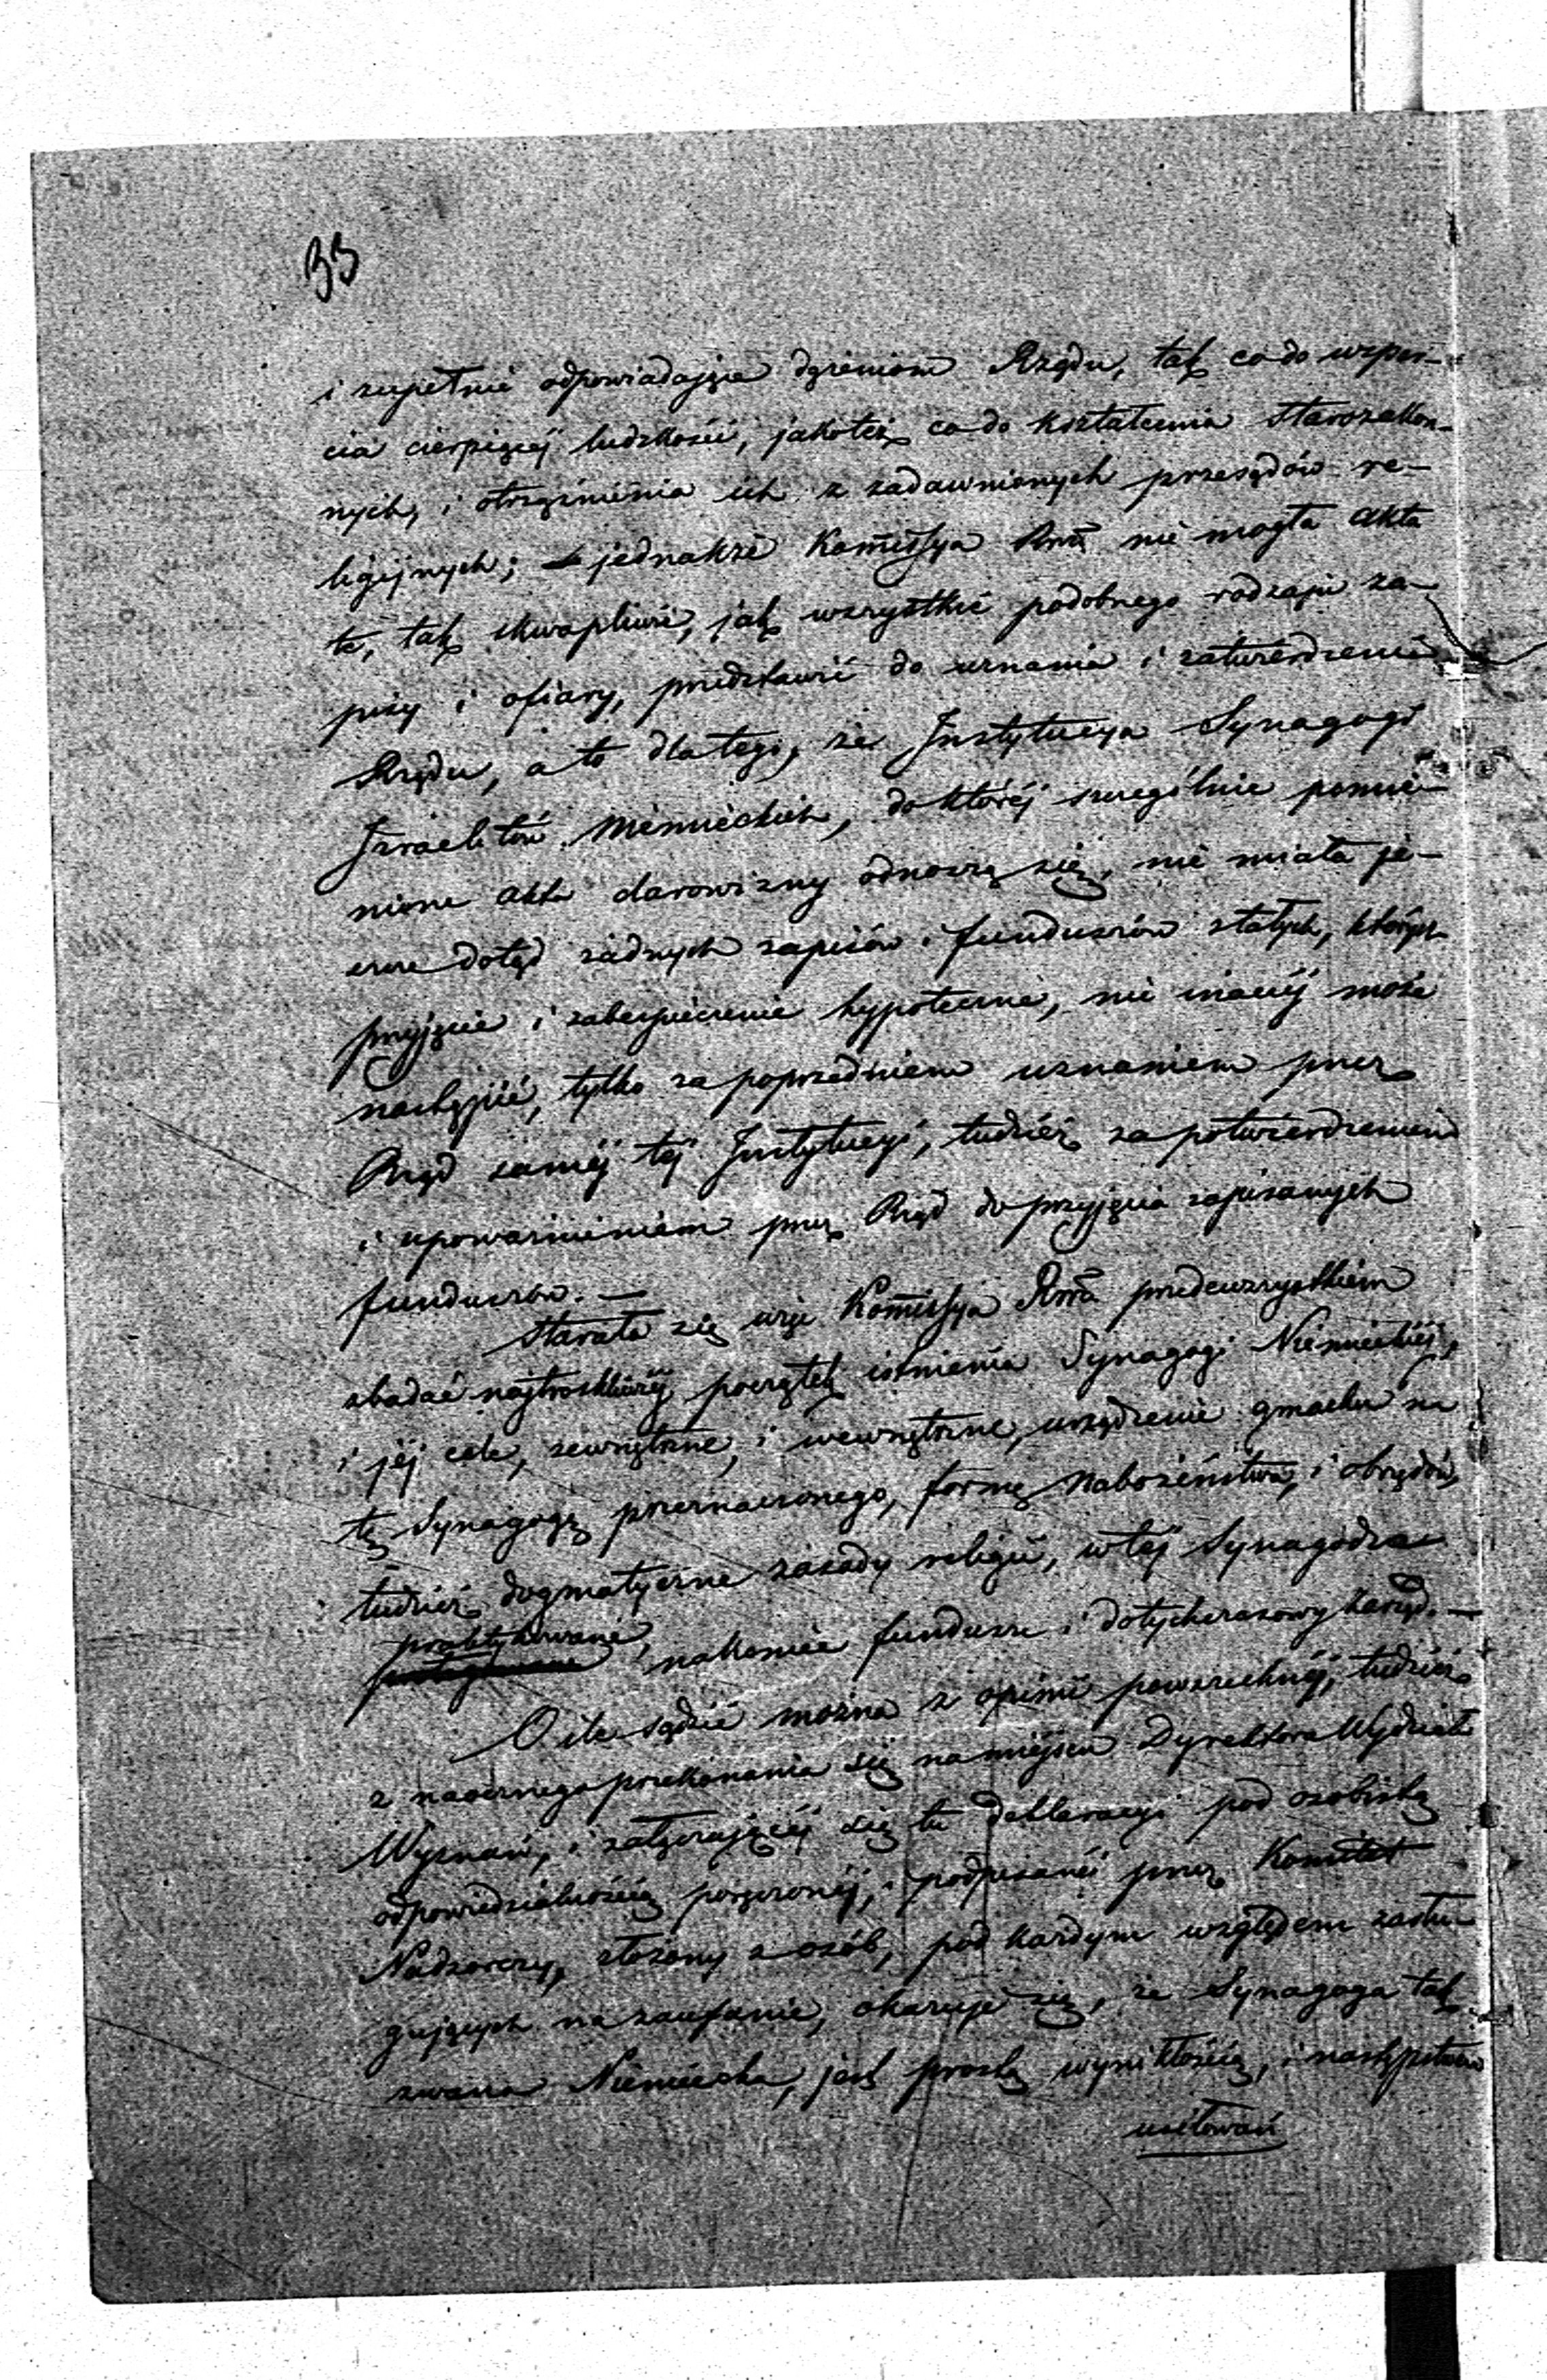 33
i zupełnie odpowiadające dążeniom Rządu, tak co do wspar-
cia cierpiącéj ludzkości, jakoteż co do kształcenia Starozakon-
nych, i otrząśnienia ich z zadawnionych przesądów re-
ligijnych; jednakże Kommissya Rzą. nie mogła akta
te, tak skwapliwie, jak wszystkie podobnego rodzaju za-
pisy i ofiary, przedstawić do uznania i zatwierdzenia
Rządu, a to dla tego, że Instytucya Synagogi
Izraelitów Niemieckich, do któréj szczególnie pomie-
nione akta darowizny odnoszą się, nie miała je-
szcze dotąd żadnych zapisów i funduszów stałych, których
przyjęcie i zabezpieczenie hypoteczne, nie inaczéj może
nastąpić, tylko za poprzedniem uznaniem przez
Rząd saméj téj Instytucyi, tudzież za potwierdzeniem
i upoważnieniem przez Rząd do przyjęcia zapisanych
funduszów. —
Starała się więc Kommissya Rzą. przedewszystkiem
zbadać najtroskliwiéj początek istnienia Synagogi Niemieckiéj,
i jéj cele, zewnętrzne, i wewnętrzne, urządzenie gmachu na
tę Synagogę przeznaczonego, formę Nabożeństwa, i obrzędów,
tudzież dogmatyczne zasady religii, w téj Synagodze
praktykowane, nakoniec fundusze i dotychczasowy Zarząd. —
O ile sądzić można z opinii powszechnéj, tudzież
z naocznego przekonania się na miejscu Dyrektora Wydziału
Wyznań, i załączającéj się tu deklaracyi pod osobistą
odpowiedzialnością poręczonéj, i podpisanéj przez Komitet
Nadzorczy, złożony z osób, pod każdym względem zasłu-
gujących na zaufanie, okazuje się, że Synagoga tak
zwana Niemiecka, jest prostą wynikłością, i następstwem
usiłowań